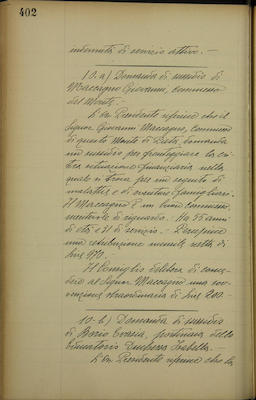 402
indennità di servizio attivo. —
10. a) Domanda di sussidio di
Maccagno Giovanni, commesso
del Monte. —
Il Presidente riferisce che il
Signor Giovanni Maccagno, commesso
di questo Monte di Pietà, domanda
un sussidio per fronteggiare la cri-
tica situazione finanziaria nella
quale si trova per in seguito di
malattie e di sventure famigliari.
Il Maccagno è un buon commesso,
meritevole di riguardo. Ha 55 anni
di età e 21 di servizio.
una retribuzione mensile netta di
Lire 970. —
Il Consiglio delibera di conce-
dere al Signor Maccagno una sov-
venzione straordinaria di Lire 200. —
10. b) Domanda di sussidio
di Borio Teresa, portinaia dello
Educatorio Duchessa Isabella. —
Il Presidente riferisce che la